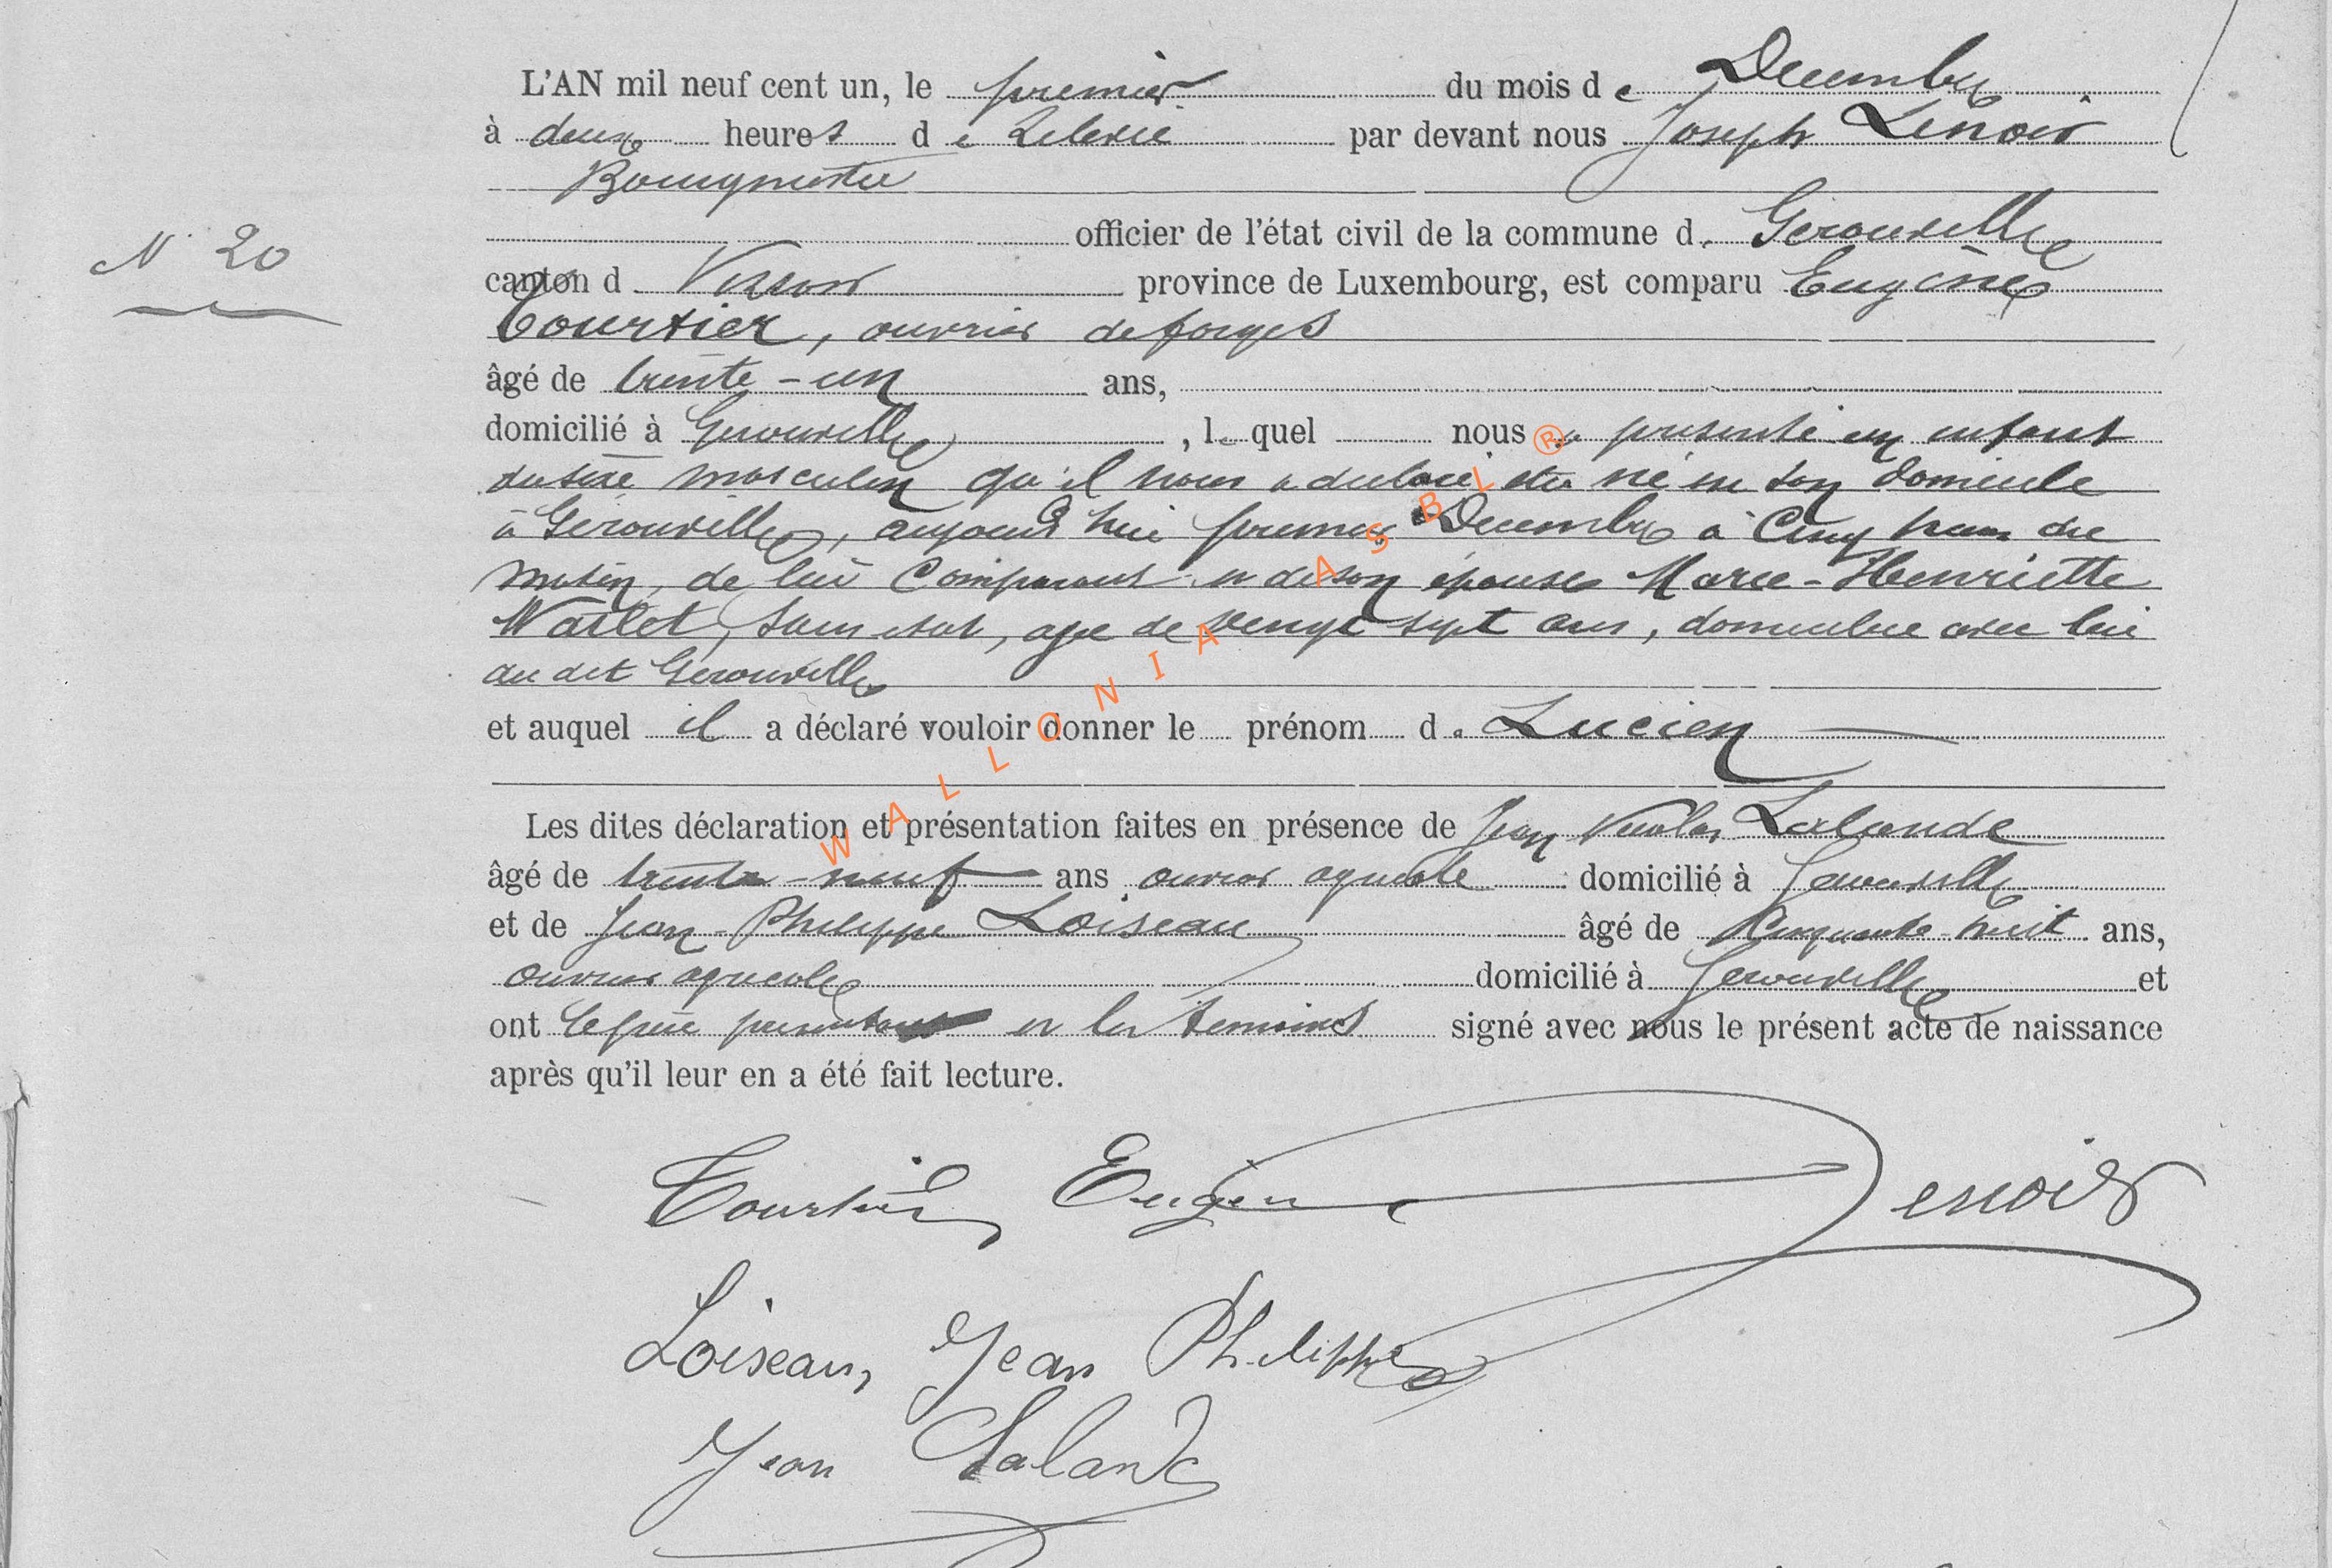 L'AN mil neuf cent un, le premier du mois de Decembre
à deux heures de Relevée par devant nous Joseph Lenoir
Bourgmestre
officier de l'état civil de la commune d. Gérouville
N° 20
canton d Virton province de Luxembourg, est comparu Eugène
Tourtier, ouvrier de forges
âgé de trente-un ans,
domicilié à Gérouville, le quel nous a présenté un enfant
du sexe masculin qu'il nous a déclaré être né en son domicile
à Gérouville, aujourd'hui premier Décembre à Cinq heures du
matin, de lui Comparant et de son épouse Marie-Henriette
Watlet, sans état, agée de vingt sept ans, domiciliée avec lui
au dit Gérouville
et auquel il a déclaré vouloir donner le prénom de Lucien
Les dites déclaration et présentation faites en présence de Jean Nicolas Lalande
âgé de trente-neuf ans ouvrier agricole domicilié à Gérouville
et de Jean-Philippe Loiseau âgé de Cinquante-huit ans,
ouvrier agricole domicilié à Gérouville et
ont le père présentant et les témoins signé avec nous le présent acte de naissance
après qu'il leur en a été fait lecture.
Tourtier Eugène Lenoir
Loiseau, Jean Philippe
Jean Lalande
WALLONIA ASBL ®